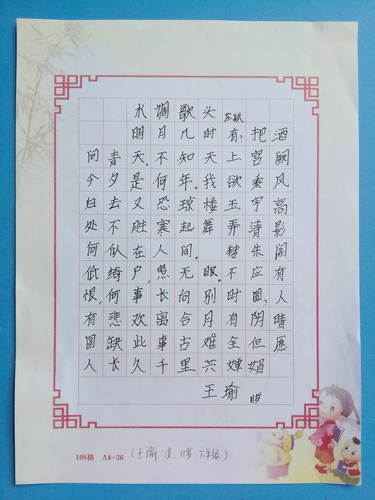 水调歌头 苏轼
明月几时有?把酒
问青天.不知天上宫阙
今夕是何年.我欲乘风
归去又恐琼楼玉宇高
处不胜寒起舞弄清影
何似在人间.转朱阁
低绮户,照无眠.不应有
恨,何事长向别时圆?人
有悲欢离合月有阴晴
圆缺此事古难全但愿
人长久千里共婵娟
王瑜
108格 A4-36 (王瑜 六年级)